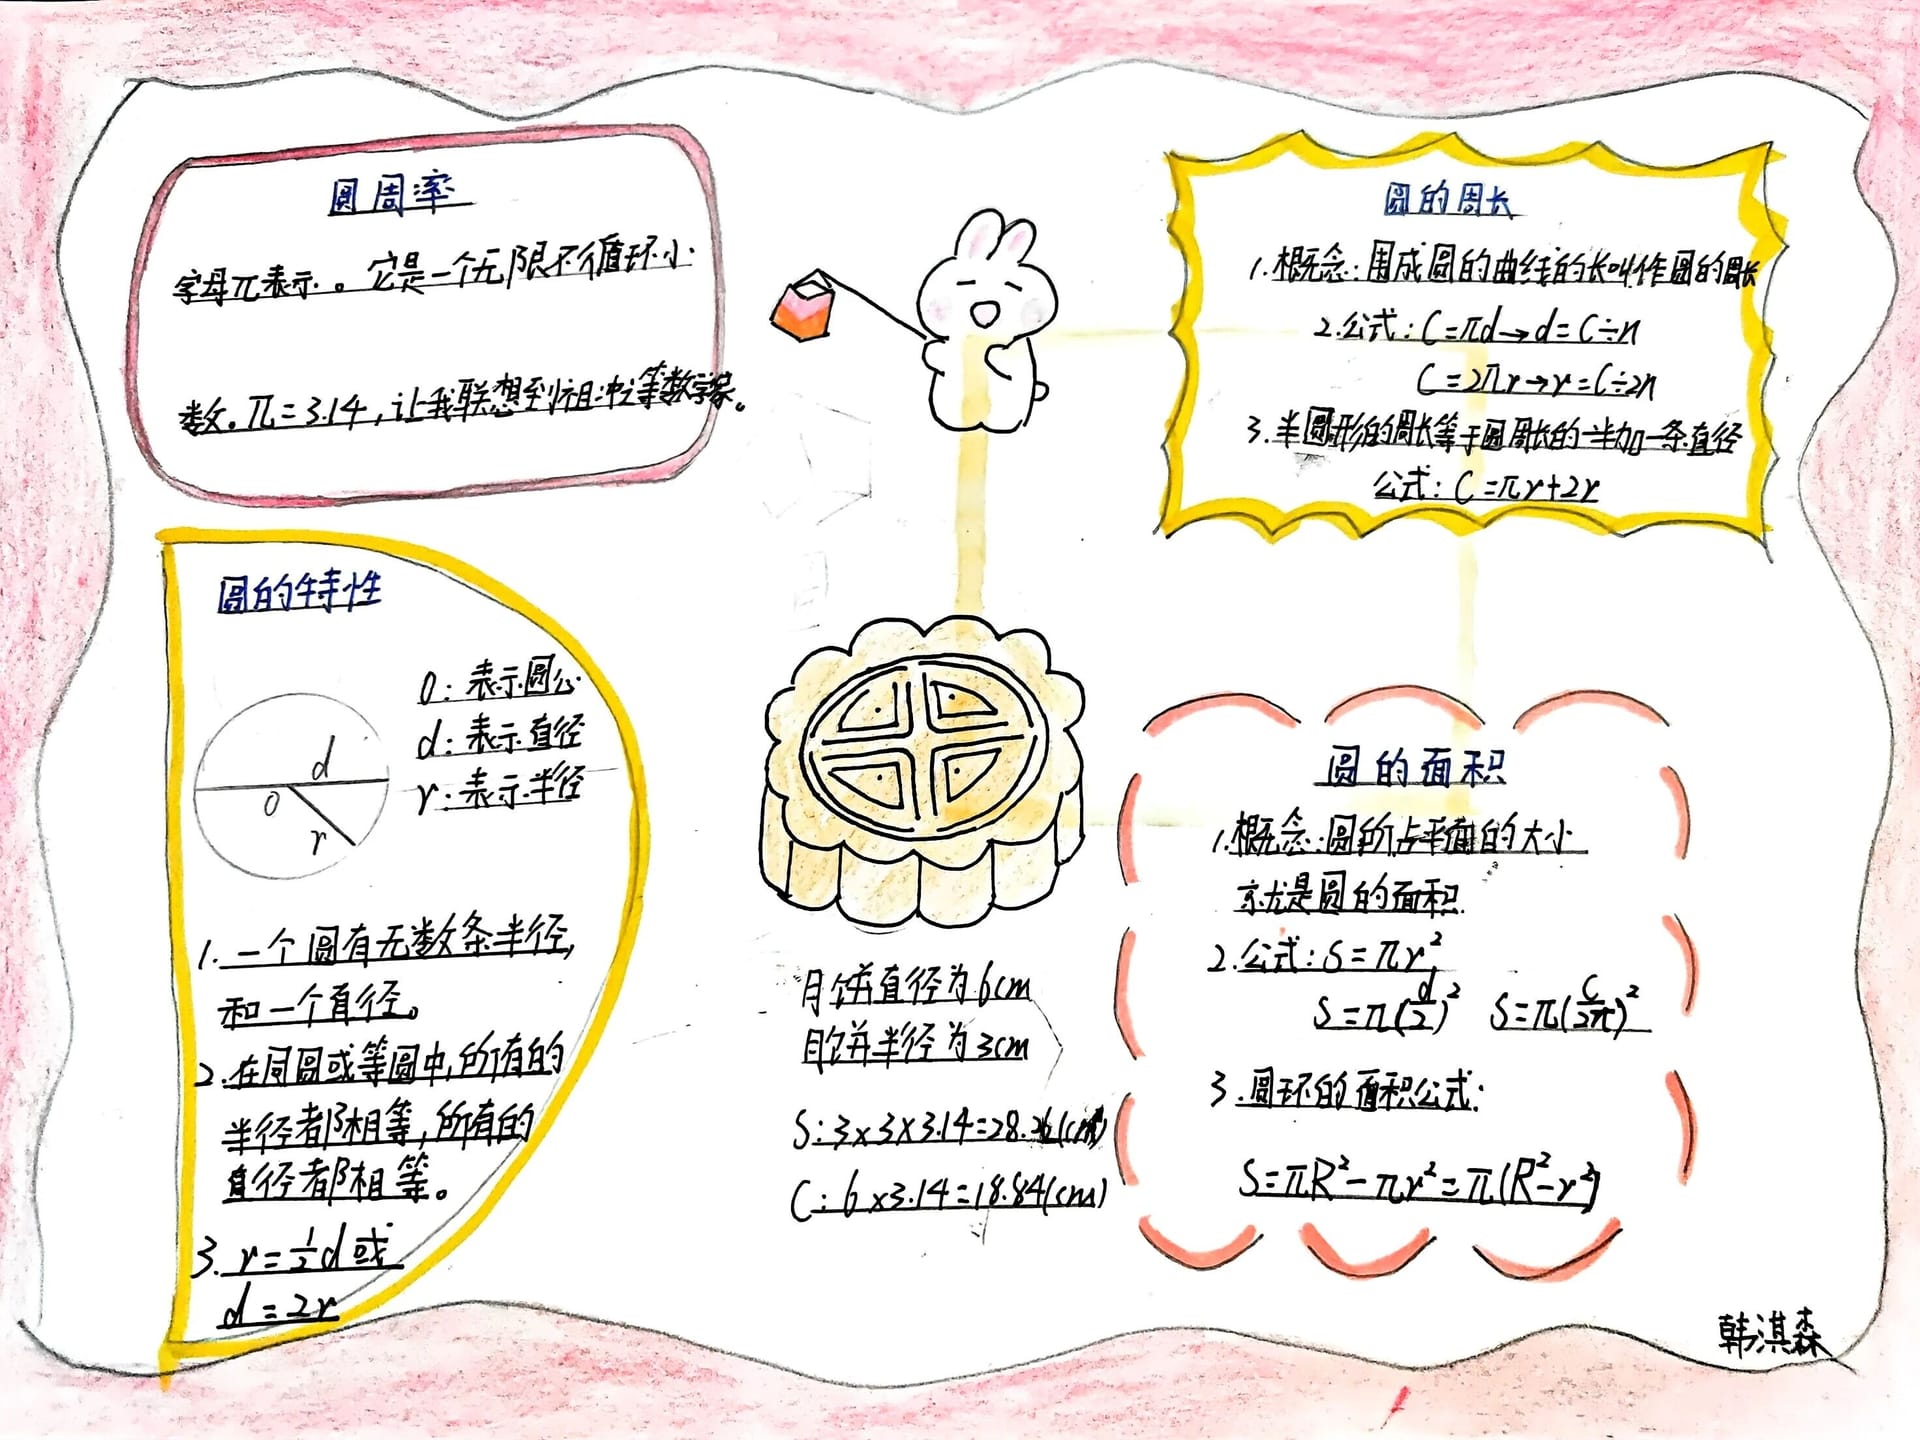 圆周率
字母π表示。它是一个无限不循环小
数。π=3.14,让我联想到祖冲之等数学家。
圆的周长
1.概念:围成圆的曲线的长叫作圆的周长
2.公式:C=πd→d=C÷π
C=2πr→r=C÷2π
3.半圆形的周长等于圆周长的一半加一条直径
公式:C=πr+2r
圆的特性
O:表示圆心
d:表示直径
r:表示半径
d
O
r
1.一个圆有无数条半径,
和一个直径。
2.在同圆或等圆中,所有的
半径都相等,所有的
直径都相等。
3.r=½d或
d=2r
月饼直径为6cm
月饼半径为3cm
S:3×3×3.14=28.26(cm²)
C:6×3.14=18.84(cm)
圆的面积
1.概念:圆所占平面的大小
就是圆的面积
2.公式:S=πr²
S=π(d/2)² S=π(C/2π)²
3.圆环的面积公式:
S=πR²-πr²=π(R²-r²)
韩淇森